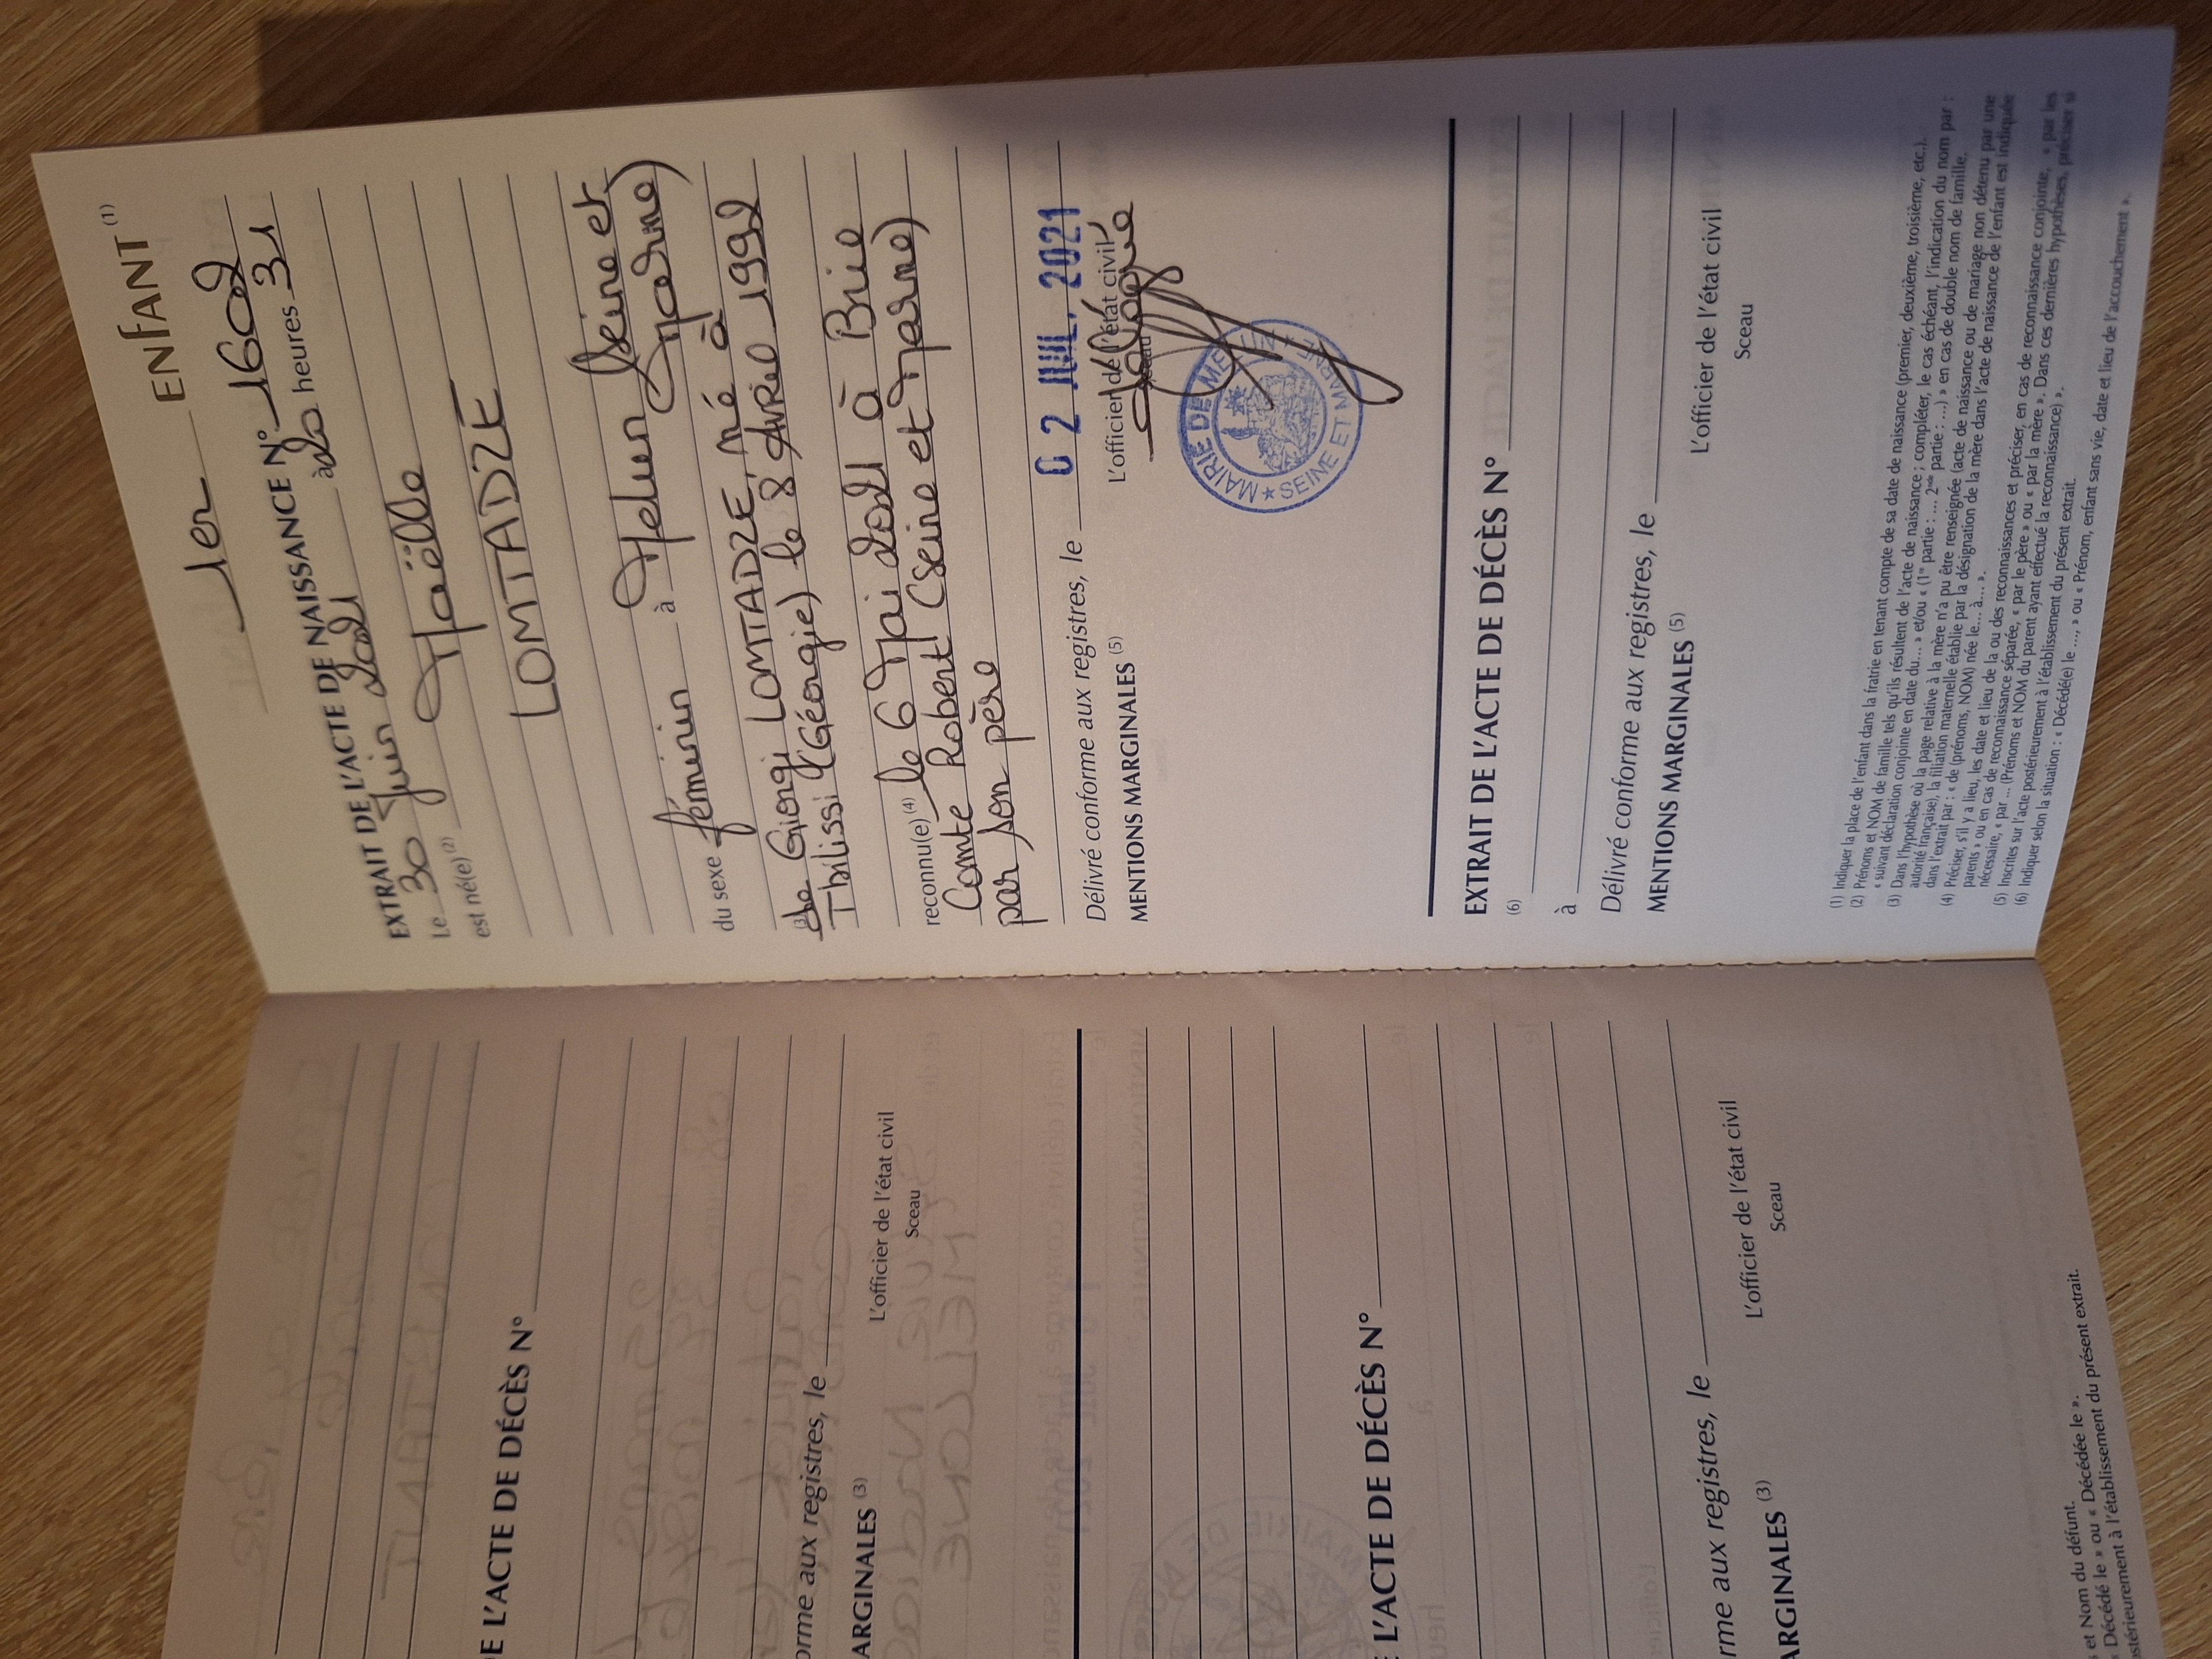 1er ENFANT (1)
EXTRAIT DE L'ACTE DE NAISSANCE N° 1602
Le 30 Juin 2021 à 20 heures 31
est né(e) (2) Maëlle
LOMTADZE
du sexe féminin à Melun (Seine et
Marne)
(3) de Giorgi LOMTADZE, né à
Tbilissi (Géorgie) le 8 AVRIL 1992
reconnu(e) (4) le 6 Mai 2021 à Brie
Comte Robert (Seine et Marne)
par son père
Délivré conforme aux registres, le 02 JUIL. 2021
MENTIONS MARGINALES (5)
L'officier de l'état civil
Sceau
MAIRIE DE MELUN
SEINE ET MARNE
EXTRAIT DE L'ACTE DE DÉCÈS N°
(6)
à
Délivré conforme aux registres, le
MENTIONS MARGINALES (5)
L'officier de l'état civil
Sceau
(1) Indiquer la place de l'enfant dans la fratrie en tenant compte de sa date de naissance (premier, deuxième, troisième, etc.).
(2) Prénoms et NOM de famille tels qu'ils résultent de l'acte de naissance ; compléter, le cas échéant, l'indication du nom par :
« suivant déclaration conjointe en date du... » et/ou « (1re partie : ... 2nde partie : ...) » en cas de double nom de famille.
(3) Dans l'hypothèse où la page relative à la mère n'a pu être renseignée (acte de naissance ou de mariage non détenu par une
autorité française), la filiation maternelle établie par la désignation de la mère dans l'acte de naissance de l'enfant est indiquée
dans l'extrait par : « de (prénoms, NOM) née le... à... ».
(4) Préciser, s'il y a lieu, les date et lieu de la ou des reconnaissances et préciser, en cas de reconnaissance conjointe, « par les
parents » ou en cas de reconnaissance séparée, « par le père » ou « par la mère ». Dans ces dernières hypothèses, préciser si
nécessaire, « par ... (Prénoms et NOM du parent ayant effectué la reconnaissance) ».
(5) Inscrites sur l'acte postérieurement à l'établissement du présent extrait.
(6) Indiquer selon la situation : « Décédé(e) le ..., » ou « Prénom, enfant sans vie, date et lieu de l'accouchement ».
DE L'ACTE DE DÉCÈS N°
orme aux registres, le
ARGINALES (3)
L'officier de l'état civil
Sceau
E L'ACTE DE DÉCÈS N°
rme aux registres, le
ARGINALES (3)
L'officier de l'état civil
Sceau
et Nom du défunt.
Décédé le » ou « Décédée le ».
stérieurement à l'établissement du présent extrait.